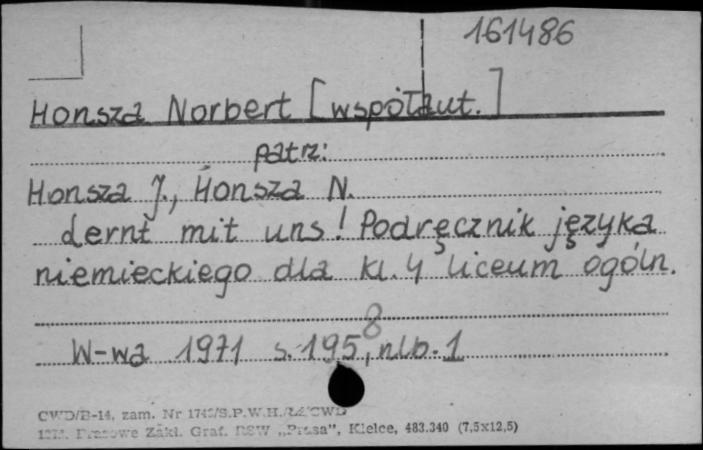 161486
Honsza Norbert [współaut.]
patrz:
Honsza J., Honsza N.
dernt mit uns! Podręcznik języka
niemieckiego dla kl. 4 liceum ogóln.
8
W-wa 1971 s. 195, nlb. 1
CWD/B-14, zam. Nr /S.P.W.H./ CWD
Prasowe Zakł. Graf. RSW „Prasa", Kielce, 483.340 (7,5x12,5)